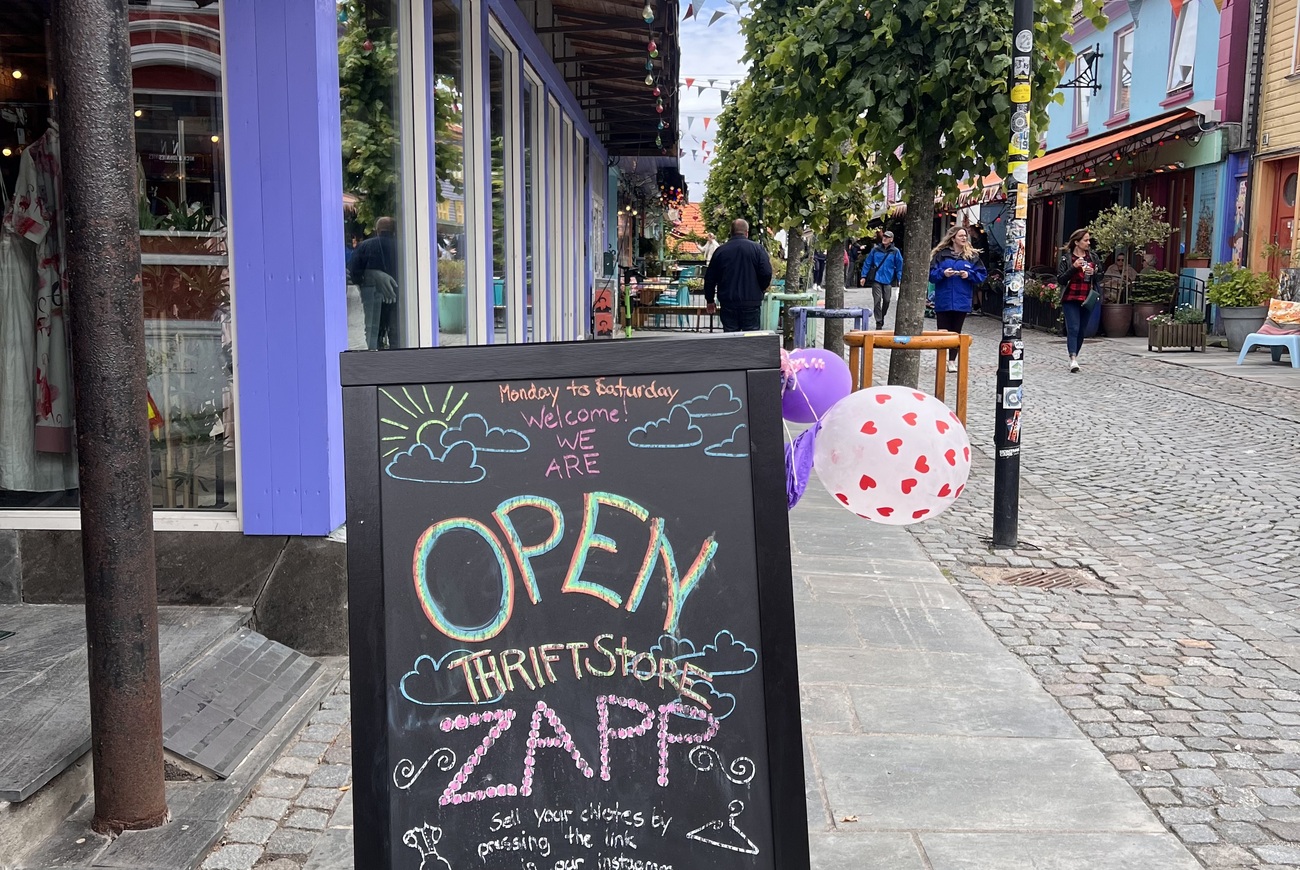 Monday to Saturday
Welcome!
WE
ARE
OPEN
THRIFT STORE
ZAPP
Sell your chlotes by
pressing the link
in our instagram